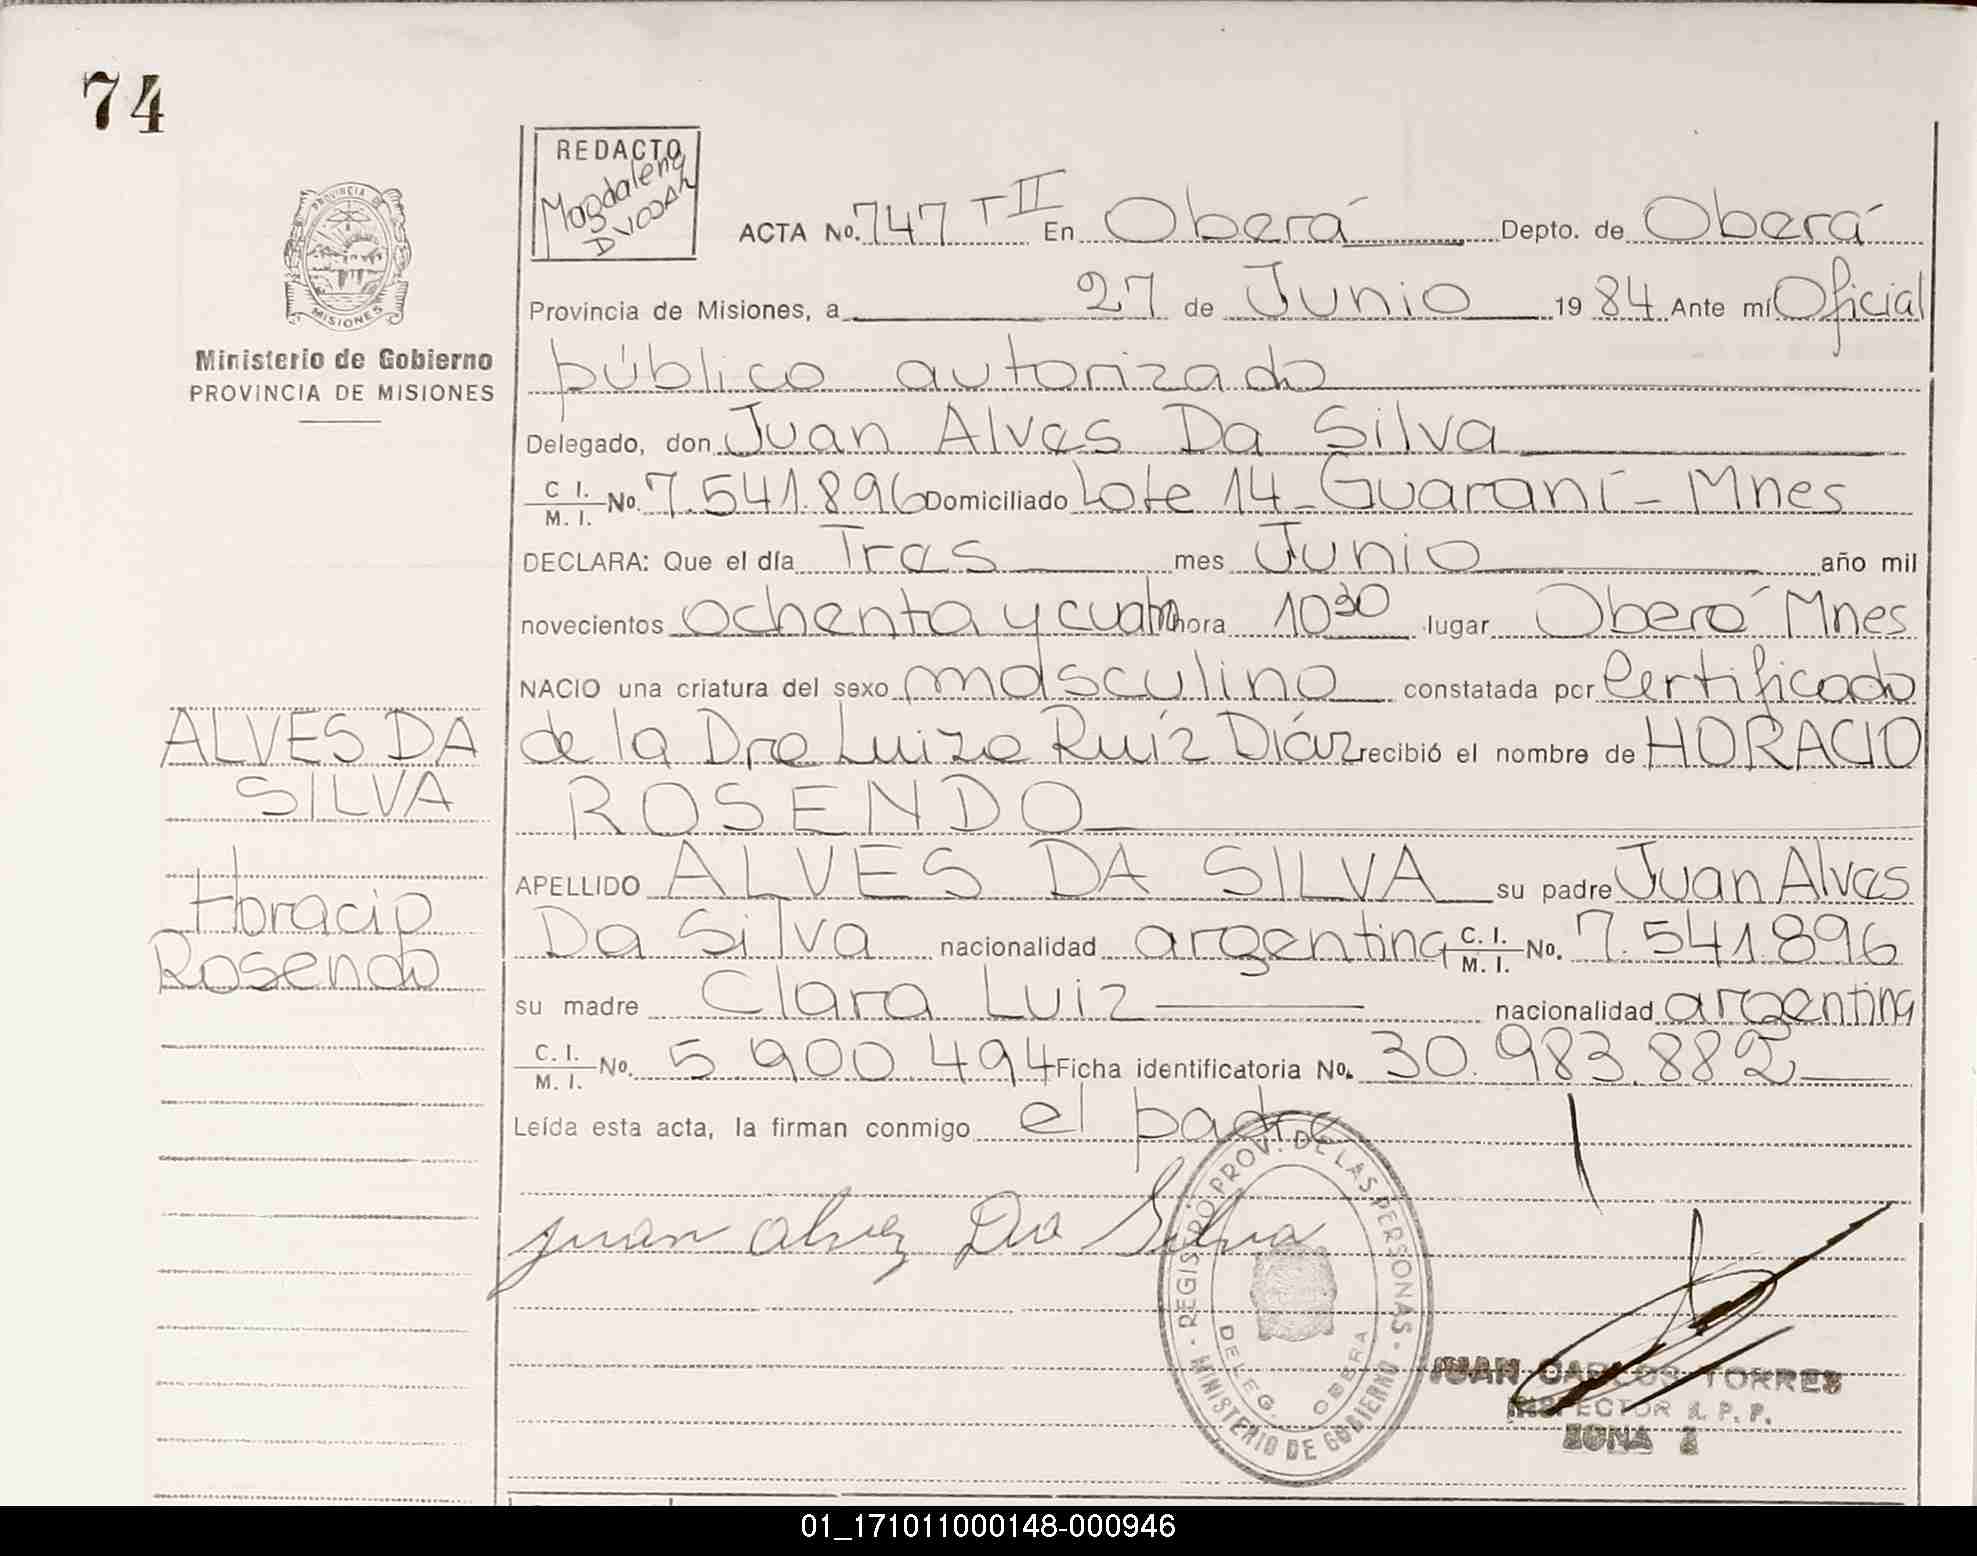 74
REDACTO
Magdalena
PROVINCIA DE
MISIONES
Ministerio de Gobierno
PROVINCIA DE MISIONES
ACTA No. 747 T II En Oberá Depto. de Oberá
Provincia de Misiones, a 27 de Junio 19 84 Ante mí Oficial
público autorizado
Delegado, don Juan Alves Da Silva
C. I. M. I. No. 7.541.896 Domiciliado Lote 14 - Guaraní - Mnes
DECLARA: Que el día Tres mes Junio año mil
novecientos ochenta y cuatro hora 10 30 lugar Oberá Mnes
NACIO una criatura del sexo masculino constatada por Certificado
de la Dra Luiza Ruíz Díaz recibió el nombre de HORACIO
ROSENDO
APELLIDO ALVES DA SILVA su padre Juan Alves
Da Silva nacionalidad argentina C. I. M. I. No. 7.541.896
su madre Clara Luiz nacionalidad argentina
C. I. M. I. No. 5.900.494 Ficha identificatoria No. 30.983.882
Leída esta acta, la firman conmigo el padre
ALVES DA
SILVA
Horacio
Rosendo
Juan Alvez Da Silva
REGISTRO PROV. DE LAS PERSONAS - MINISTERIO DE GOBIERNO -
DELEG. OBERA
JUAN CARLOS TORRES
INSPECTOR R. P. P.
ZONA
01_171011000148-000946